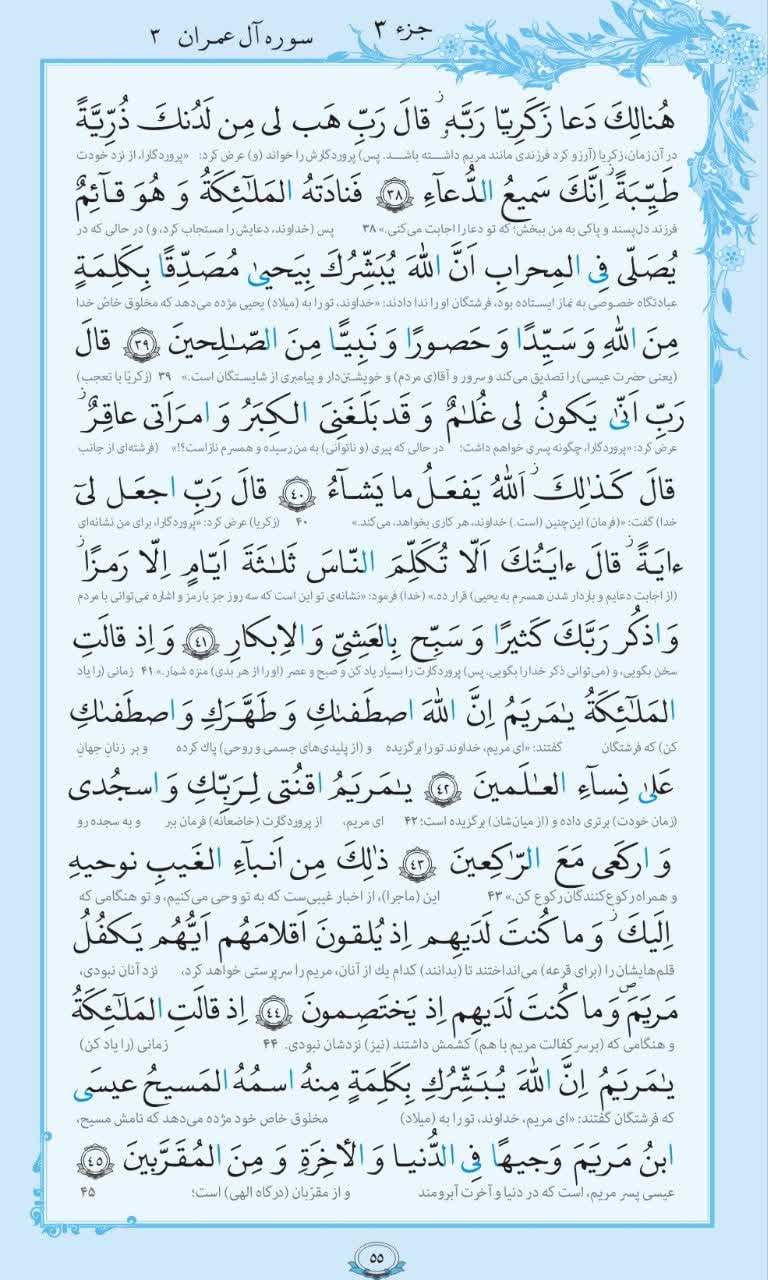 جزء ۳
سوره آل عمران ۳
هُنالِكَ دَعا زَكَرِيّا رَبَّهٗۚ قالَ رَبِّ هَب لی مِن لَدُنكَ ذُرِّيَّةً
در آن زمان، زکریا (آرزو کرد فرزندی مانند مریم داشته باشد. پس) پروردگارش را خواند (و) عرض کرد: «پروردگارا، از نزد خودت
طَيِّبَةًۚ اِنَّكَ سَميعُ الدُّعآءِ ﴿٣٨﴾ فَنادَتهُ المَلٰٓئِكَةُ وَ هُوَ قآئِمٌ
فرزند دل‌پسند و پاکی به من ببخش؛ که تو دعا را اجابت می‌کنی.» ۳۸ پس (خداوند، دعایش را مستجاب کرد، و) در حالی که در
يُصَلّی فِی المِحرابِ اَنَّ اللّٰهَ يُبَشِّرُكَ بِيَحيیٰ مُصَدِّقًا بِكَلِمَةٍ
عبادتگاه خصوصی به نماز ایستاده بود، فرشتگان او را ندا دادند: «خداوند، تو را به (میلاد) یحیی مژده می‌دهد که مخلوق خاصّ خدا
مِنَ اللّٰهِ وَ سَيِّدًا وَ حَصورًا وَ نَبِيًّا مِنَ الصّٰلِحينَ ﴿٣٩﴾ قالَ
(یعنی حضرت عیسی) را تصدیق می‌کند و سرور و آقا(ی مردم) و خویشتن‌دار و پیامبری از شایستگان است.» ۳۹ (زکریّا با تعجب)
رَبِّ اَنّیٰ يَكونُ لی غُلٰمٌ وَ قَد بَلَغَنِیَ الكِبَرُ وَ امرَاَتی عاقِرٌۚ
عرض کرد: «پروردگارا، چگونه پسری خواهم داشت؛ در حالی که پیری (و ناتوانی) به من رسیده و همسرم نازاست؟!» (فرشته‌ای از جانب
قالَ كَذٰلِكَۚ اَللّٰهُ يَفعَلُ ما يَشآءُ ﴿٤٠﴾ قالَ رَبِّ اجعَل لیٓ
خدا) گفت: «(فرمان) این‌چنین (است.) خداوند، هر کاری بخواهد، می‌کند.» ۴۰ (زکریا) عرض کرد: «پروردگارا، برای من نشانه‌ای
ءايَةًۚ قالَ ءايَتُكَ اَلّا تُكَلِّمَ النّاسَ ثَلٰثَةَ اَيّامٍ اِلّا رَمزًاۚ
(از اجابت دعایم و باردار شدن همسرم به یحیی) قرار ده.» (خدا) فرمود: «نشانه‌ی تو این است که سه روز جز با رمز و اشاره نمی‌توانی با مردم
وَ اذكُر رَبَّكَ كَثيرًا وَ سَبِّح بِالعَشِیِّ وَ الاِبكارِ ﴿٤١﴾ وَ اِذ قالَتِ
سخن بگویی، و (می‌توانی ذکر خدا را بگویی. پس) پروردگارت را بسیار یاد کن و صبح و عصر (او را از هر بدی) منزه شمار.» ۴۱ زمانی (را یاد
المَلٰٓئِكَةُ يٰمَريَمُ اِنَّ اللّٰهَ اصطَفىٰكِ وَ طَهَّرَكِ وَ اصطَفىٰكِ
کن) که فرشتگان گفتند: «ای مریم، خداوند تو را برگزیده و (از پلیدی‌های جسمی و روحی) پاك کرده و بر زنان جهانِ
عَلیٰ نِسآءِ العٰلَمينَ ﴿٤٢﴾ يٰمَريَمُ اقنُتی لِرَبِّكِ وَ اسجُدی
(زمان خودت) برتری داده و (از میان‌شان) برگزیده است؛ ۴۲ ای مریم، از پروردگارت (خاضعانه) فرمان ببر و به سجده رو
وَ اركَعی مَعَ الرّٰكِعينَ ﴿٤٣﴾ ذٰلِكَ مِن اَنبآءِ الغَيبِ نوحيهِ
و همراه رکوع‌کنندگان رکوع کن.» ۴۳ این (ماجرا)، از اخبار غیبی‌ست که به تو وحی می‌کنیم، و تو هنگامی که
اِلَيكَۚ وَ ما كُنتَ لَدَيهِم اِذ يُلقونَ اَقلامَهُم اَيُّهُم يَكفُلُ
قلم‌هایشان را (برای قرعه) می‌انداختند تا (بدانند) کدام یك از آنان، مریم را سرپرستی خواهد کرد، نزد آنان نبودی،
مَريَمَۖ وَ ما كُنتَ لَدَيهِم اِذ يَختَصِمونَ ﴿٤٤﴾ اِذ قالَتِ المَلٰٓئِكَةُ
و هنگامی که (بر سر کفالت مریم با هم) کشمش داشتند (نیز) نزدشان نبودی. ۴۴ زمانی (را یاد کن)
يٰمَريَمُ اِنَّ اللّٰهَ يُبَشِّرُكِ بِكَلِمَةٍ مِنهُ اسمُهُ المَسيحُ عيسَی
که فرشتگان گفتند: «ای مریم، خداوند، تو را به (میلاد) مخلوق خاص خود مژده می‌دهد که نامش مسیح،
ابنُ مَريَمَ وَجيهًا فِی الدُّنيا وَ الأخِرَةِ وَ مِنَ المُقَرَّبينَ ﴿٤٥﴾
عیسی پسر مریم، است که در دنیا و آخرت آبرومند و از مقرّبان (درگاه الهی) است؛ ۴۵
۵۵